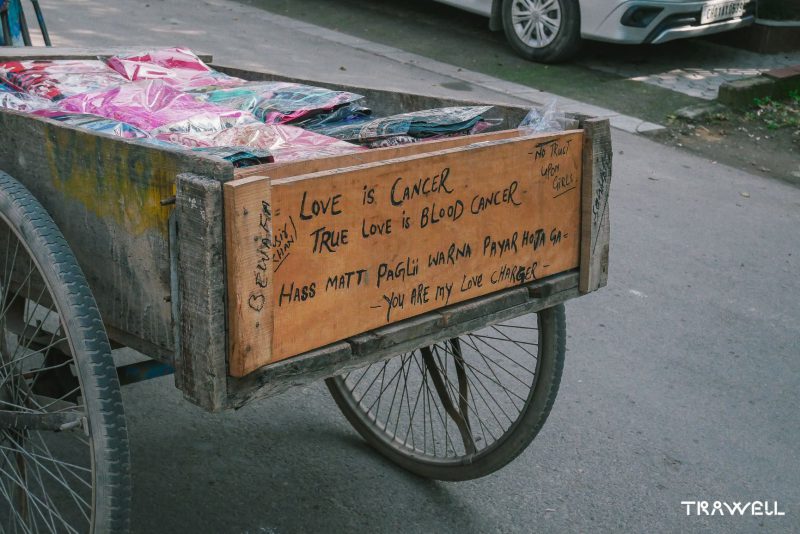 Love is Cancer
True Love is Blood Cancer
Hass Matt Paglii Warna Payar Hota Ga =
- You are my Love Charger -
- No Trust
upon
Girls
Bewafa
TRAWELL